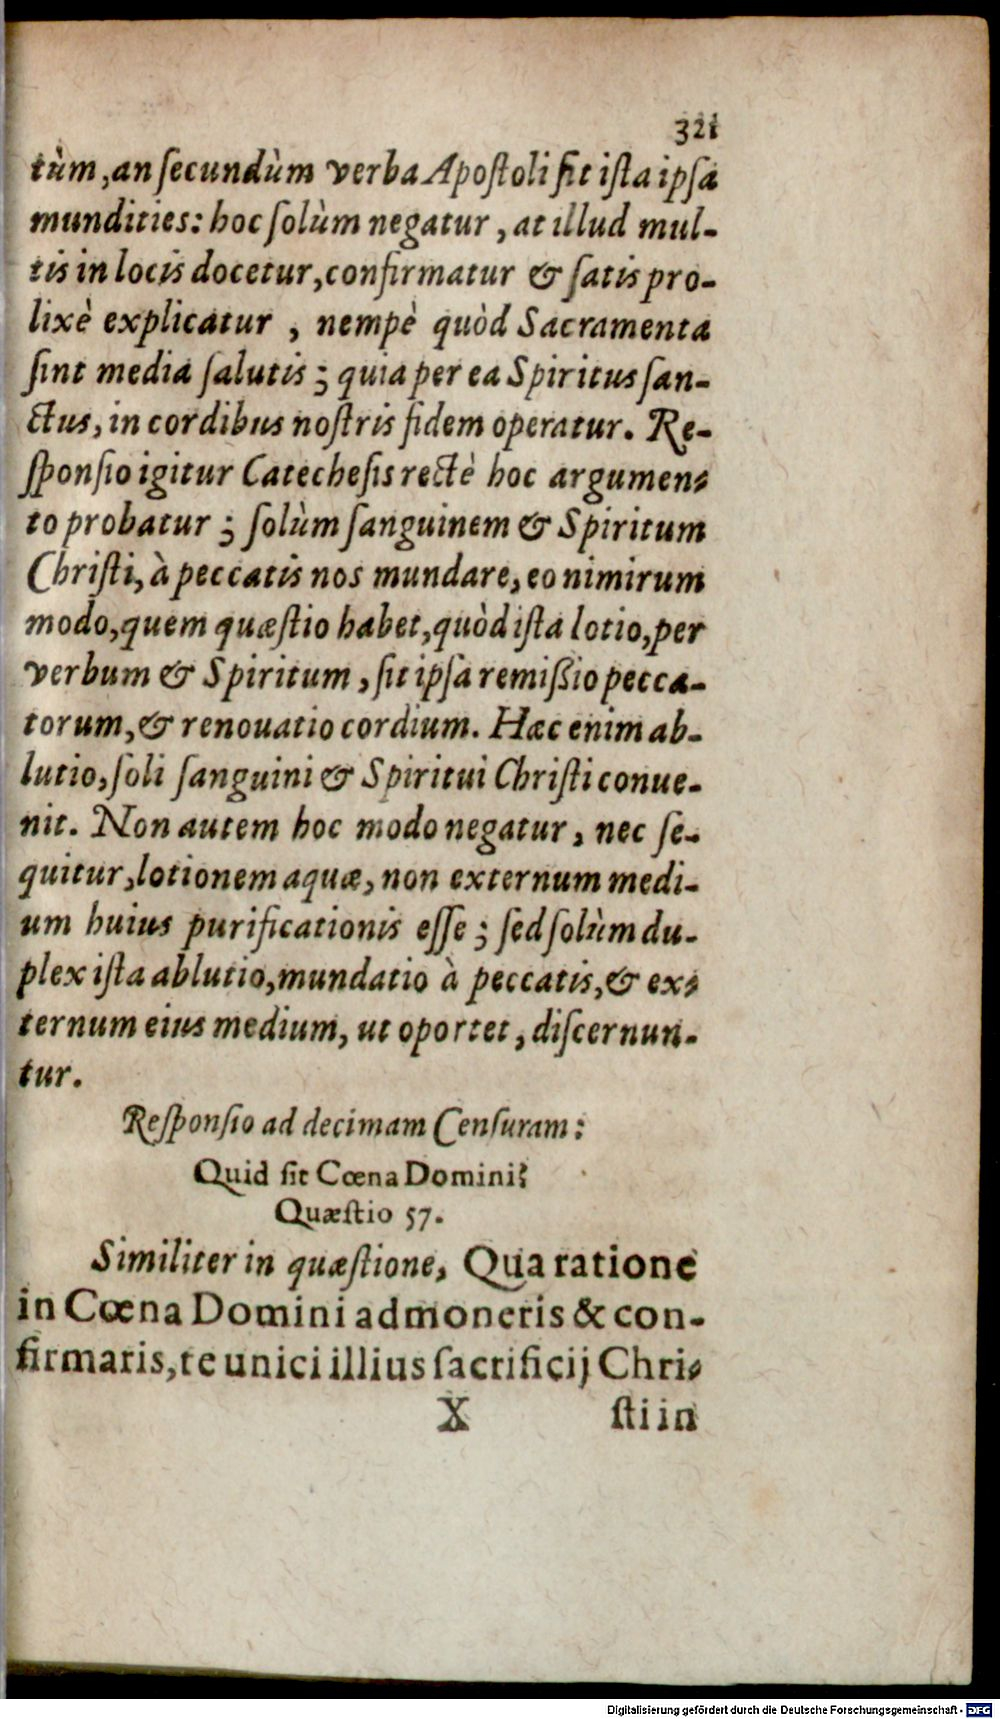 321
tùm, an ſecundùm verba Apoſtoli ſit iſta ipſa
mundities: hoc ſolùm negatur, at illud mul-
tis in locis docetur, confirmatur & ſatis pro-
lixè explicatur, nempè quòd Sacramenta
ſint media ſalutis; quia per ea Spiritus ſan-
ctus, in cordibus noſtris fidem operatur. Re-
ſponſio igitur Catecheſis rectè hoc argumen-
to probatur; ſolùm ſanguinem & Spiritum
Chriſti, à peccatis nos mundare, eo nimirum
modo, quem quæſtio habet, quòd iſta lotio, per
verbum & Spiritum, ſit ipſa remiſſio pecca-
torum, & renouatio cordium. Hæc enim ab-
lutio, ſoli ſanguini & Spiritui Chriſti conue-
nit. Non autem hoc modo negatur, nec ſe-
quitur, lotionem aquæ, non externum medi-
um huius purificationis eſſe; ſed ſolùm du-
plex iſta ablutio, mundatio à peccatis, & ex-
ternum eius medium, ut oportet, diſcernun-
tur.
Reſponſio ad decimam Cenſuram:
Quid ſit Cœna Domini?
Quæſtio 57.
Similiter in quæſtione, Qua ratione
in Cœna Domini admoneris & con-
firmaris, te unici illius ſacrificij Chri-
X ſti in
Digitalisierung gefördert durch die Deutsche Forschungsgemeinschaft - DFG